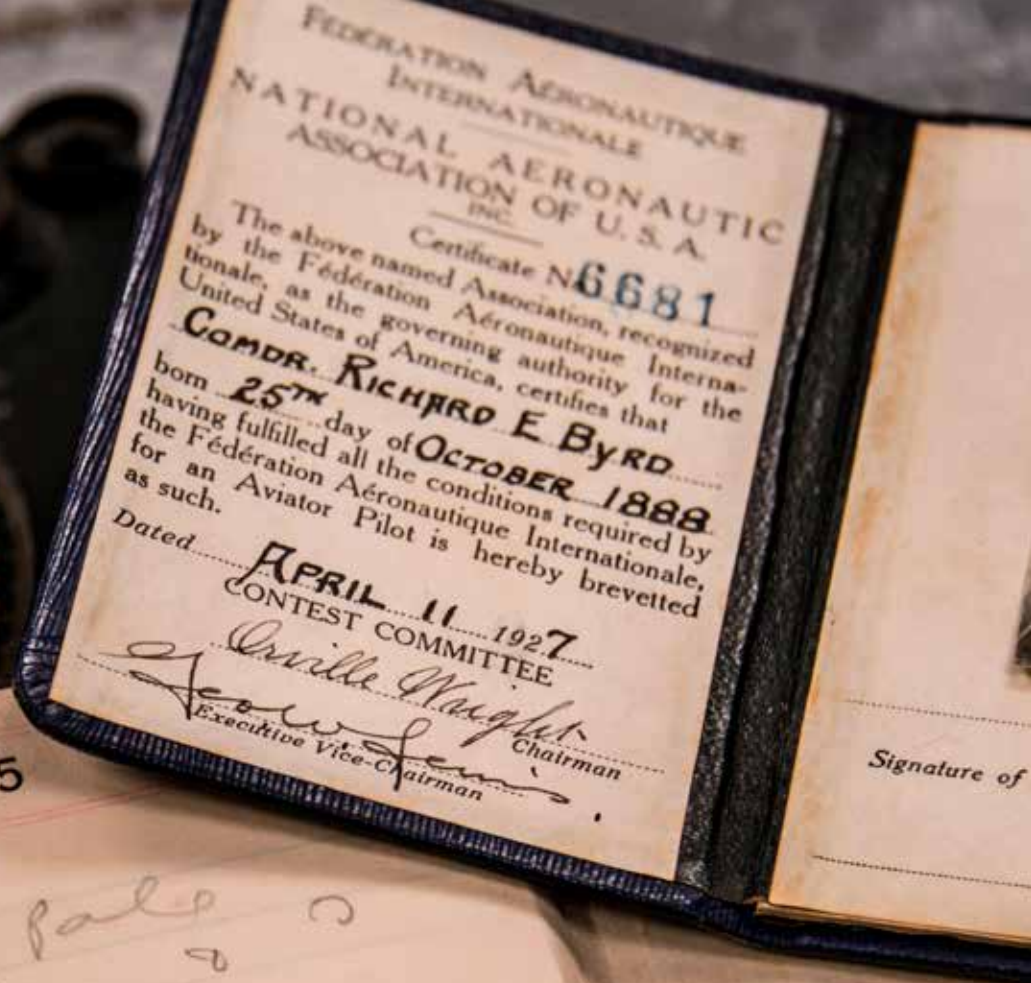 FÉDÉRATION AÉRONAUTIQUE
INTERNATIONALE
NATIONAL AERONAUTIC
ASSOCIATION OF U. S. A.
INC.
Certificate No 6681
The above named Association, recognized
by the Fédération Aéronautique Interna-
tionale, as the governing authority for the
United States of America, certifies that
COMDR. RICHARD E BYRD
born 25TH day of OCTOBER 1888
having fulfilled all the conditions required by
the Fédération Aéronautique Internationale,
for an Aviator Pilot is hereby brevetted
as such.
Dated APRIL 11 1927
CONTEST COMMITTEE
Orville Wright
Chairman
Executive Vice-Chairman
Signature of
5